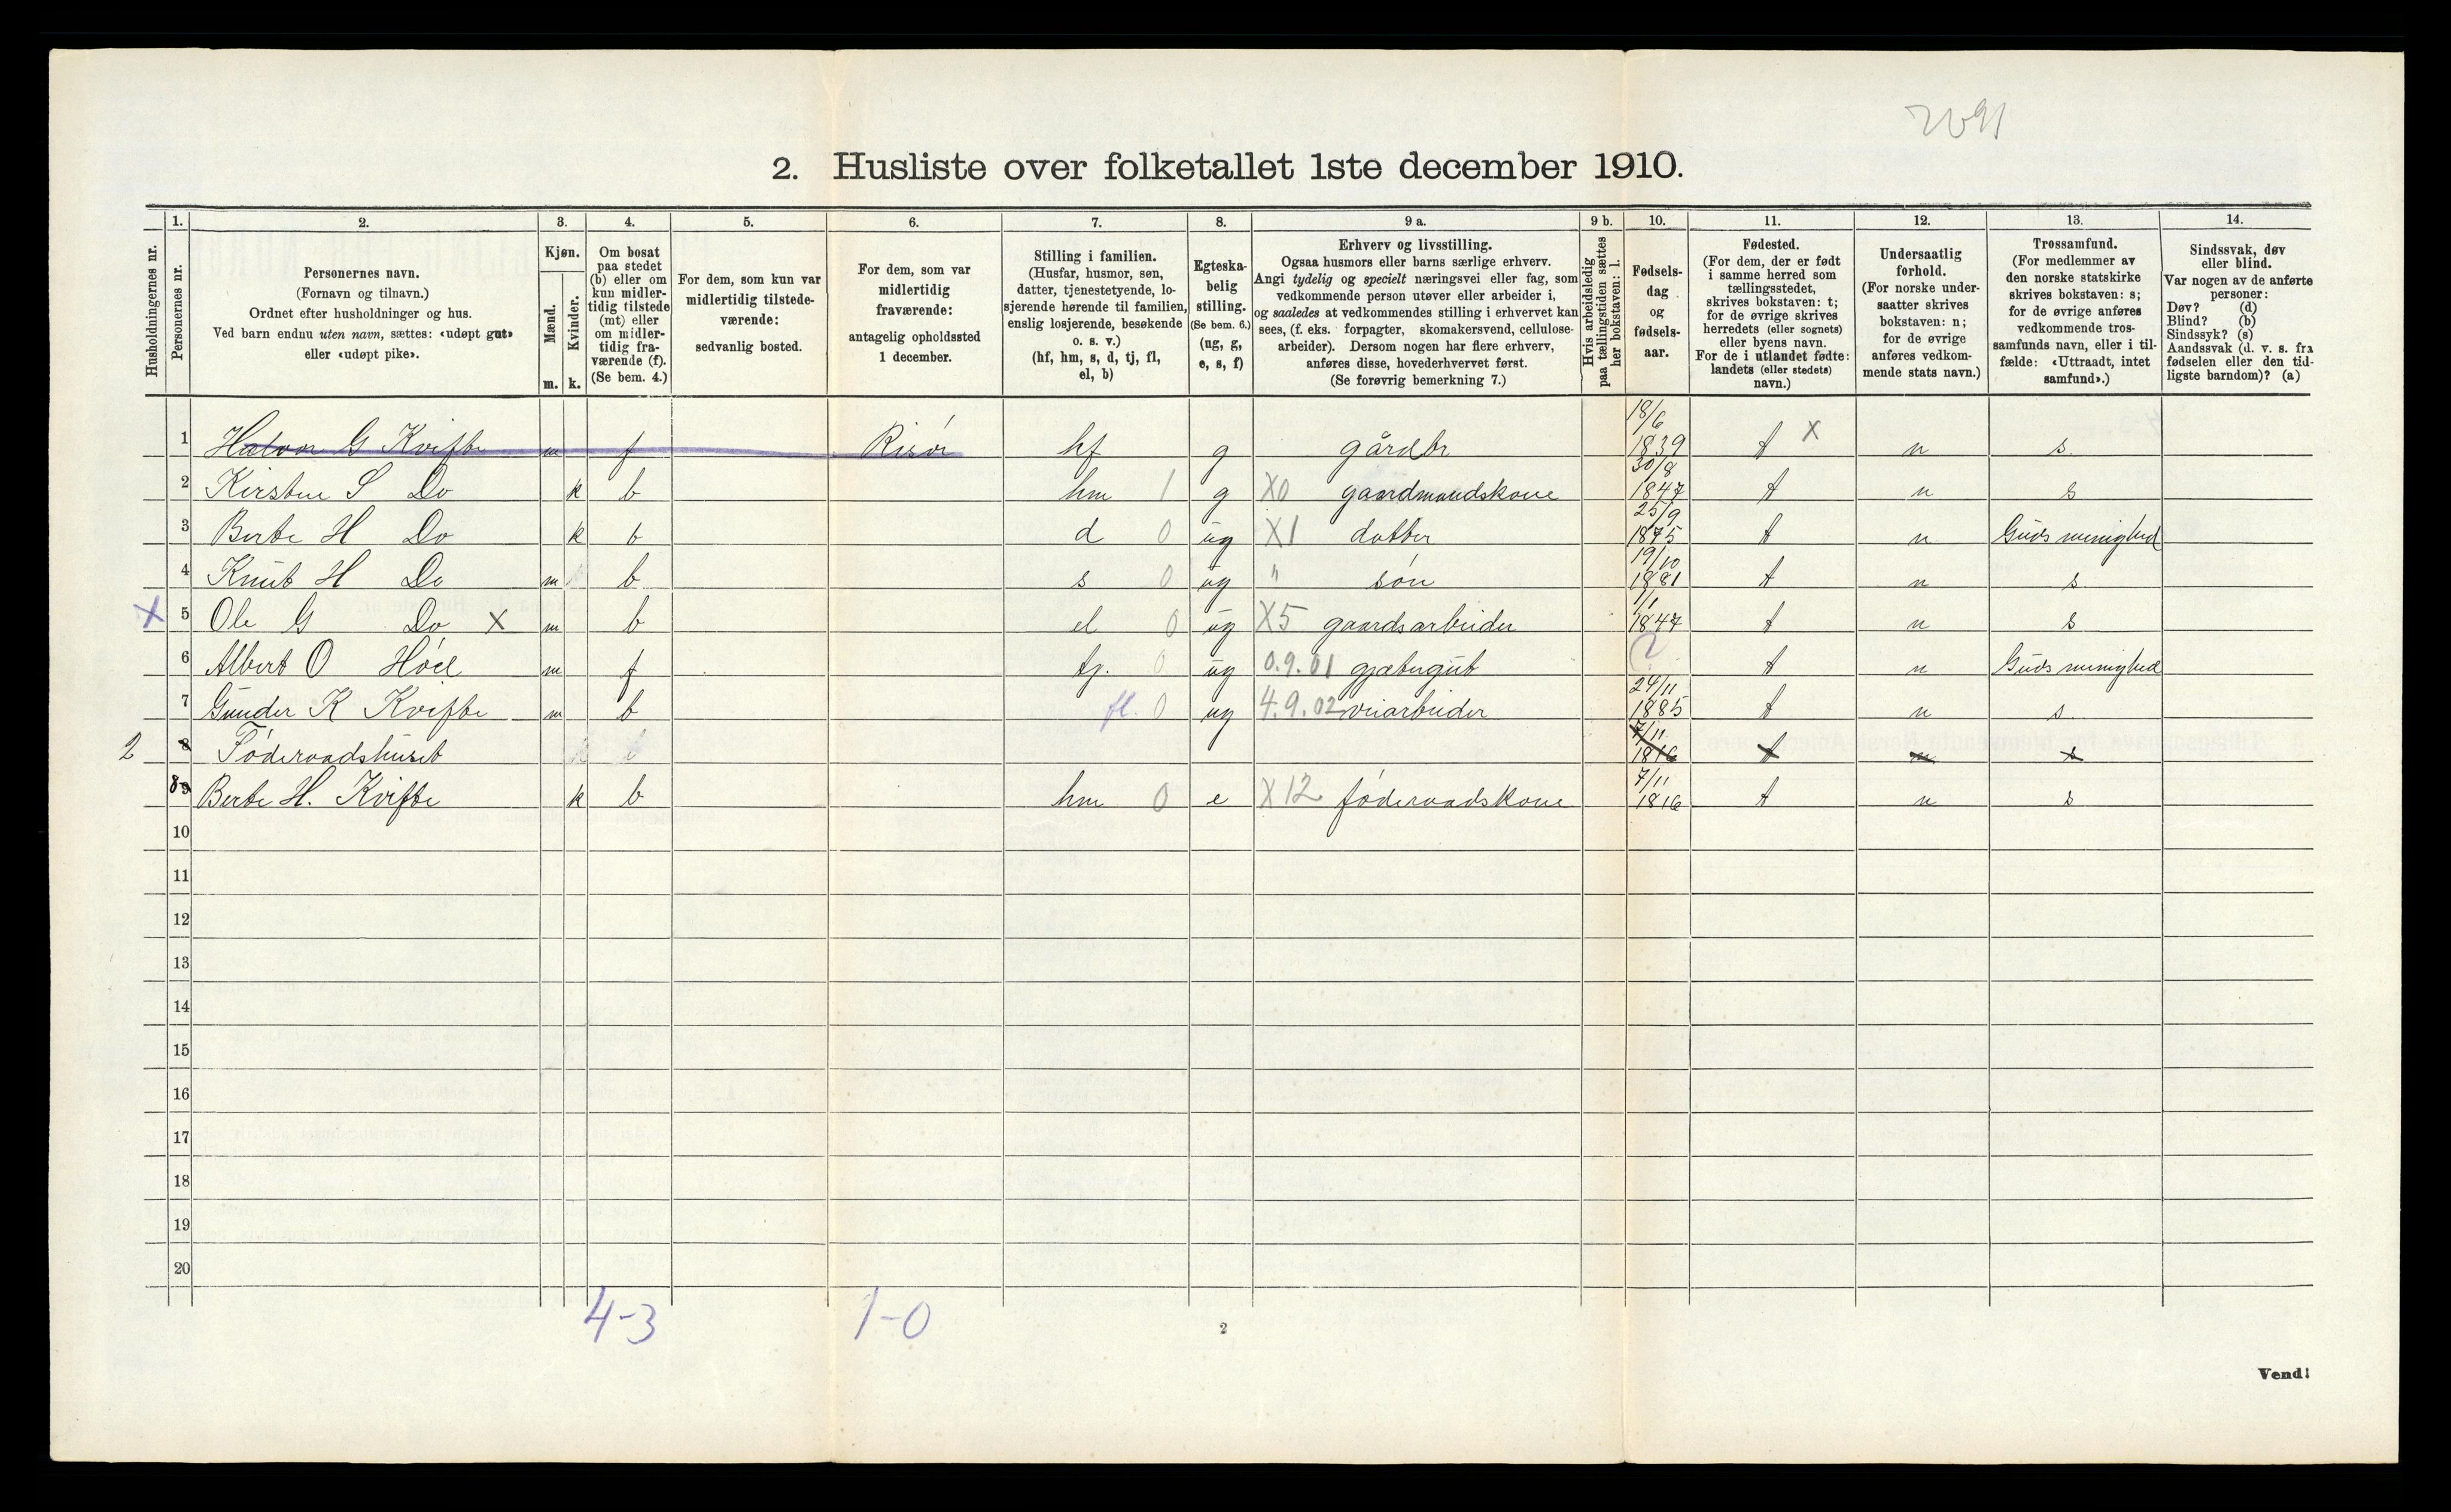 2. Husliste over folketallet 1ste december 1910.
Husholdningernes nr.
1. Personernes nr.
2. Personernes navn.
(Fornavn og tilnavn.)
Ordnet efter husholdninger og hus.
Ved barn endnu uten navn, sættes: «udøpt gut»
eller «udøpt pike».
3. Kjøn.
Mænd. m.
Kvinder. k.
4. Om bosat
paa stedet
(b) eller om
kun midler-
tidig tilstede
(mt) eller
om midler-
tidig fra-
værende (f).
(Se bem. 4.)
5. For dem, som kun var
midlertidig tilstede-
værende:
sedvanlig bosted.
6. For dem, som var
midlertidig
fraværende:
antagelig opholdssted
1 december.
7. Stilling i familien.
(Husfar, husmor, søn,
datter, tjenestetyende, lo-
sjerende hørende til familien,
enslig losjerende, besøkende
o. s. v.)
(hf, hm, s, d, tj, fl,
el, b)
8. Egteska-
belig
stilling.
(Se bem. 6.)
(ug, g,
e, s, f)
9 a. Erhverv og livsstilling.
Ogsaa husmors eller barns særlige erhverv.
Angi tydelig og specielt næringsvei eller fag, som
vedkommende person utøver eller arbeider i,
og saaledes at vedkommendes stilling i erhvervet kan
sees, (f. eks. forpagter, skomakersvend, cellulose-
arbeider). Dersom nogen har flere erhverv,
anføres disse, hovederhvervet først.
(Se forøvrig bemerkning 7.)
9 b. Hvis arbeidsledig
paa tællingstiden sættes
her bokstaven: l.
10. Fødsels-
dag
og
fødsels-
aar.
11. Fødested.
(For dem, der er født
i samme herred som
tællingsstedet,
skrives bokstaven: t;
for de øvrige skrives
herredets (eller sognets)
eller byens navn.
For de i utlandet fødte:
landets (eller stedets)
navn.)
12. Undersaatlig
forhold.
(For norske under-
saatter skrives
bokstaven: n;
for de øvrige
anføres vedkom-
mende stats navn.)
13. Trossamfund.
(For medlemmer av
den norske statskirke
skrives bokstaven: s;
for de øvrige anføres
vedkommende tros-
samfunds navn, eller i til-
fælde: «Uttraadt, intet
samfund».)
14. Sindssvak, døv
eller blind.
Var nogen av de anførte
personer:
Døv? (d)
Blind? (b)
Sindssyk? (s)
Aandssvak (d. v. s. fra
fødselen eller den tid-
ligste barndom)? (a)
1 Halvor G Kvifte m f Risør hf g gårdbr 18/6 1839 t X n s.
2 Kirstne S Do k b hm 1 g X0 gaardmandskone 30/8 1847 t n s
3 Berte H Do k b d 0 ug X1 datter 25/9 1875 t n Guds menighed
4 Knut H Do m b s 0 ug " søn 19/10 1881 t n s
X 5 Ole G Do X m b el 0 ug X5 gaardsarbeider 1/1 1847 t n s
6 Albert O Høel m f tj. 0 ug 0.9.01 gjætergut ? t n Guds menighed
7 Gunder K Kvifte m b fl. 0 ug 4.9.02 veiarbeider 24/11 1885 t n s.
2 8 Føderaadshuset 7/11 1816 t n s
8 9 Berte H. Kvifte k b hm 0 e X12 føderaadskone 7/11 1816 t n s
10
11
12
13
14
15
16
17
18
19
20
4-3 1-0
2
Vend!